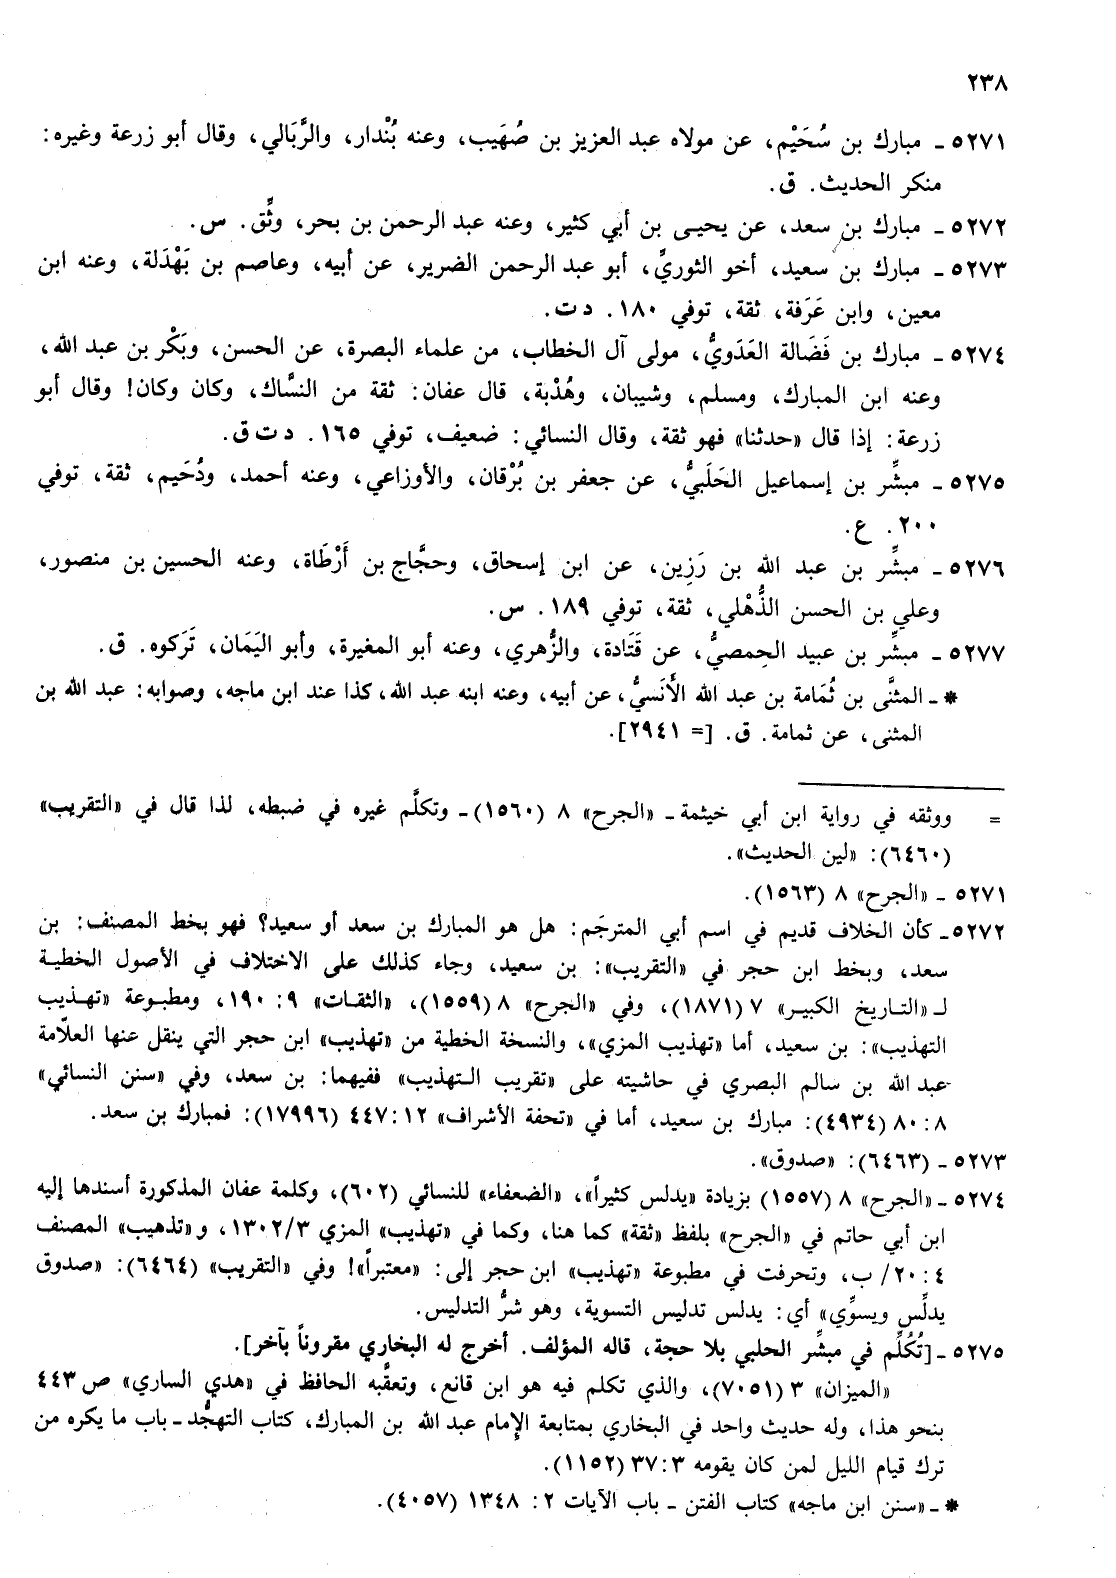 ٢٣٨
٥٢٧١ ـ مبارك بن سُحَيْم، عن مولاه عبد العزيز بن صُهَيب، وعنه بُنْدار، والرَّبَالي، وقال أبو زرعة وغيره:
منكر الحديث. ق.
٥٢٧٢ ـ مبارك بن سعد، عن يحيى بن أبي كثير، وعنه عبد الرحمن بن بحر، وثِّق. س.
٥٢٧٣ ـ مبارك بن سعيد، أخو الثوريِّ، أبو عبد الرحمن الضرير، عن أبيه، وعاصم بن بَهْدَلة، وعنه ابن
معين، وابن عَرَفة، ثقة، توفي ١٨٠. د ت.
٥٢٧٤ ـ مبارك بن فَضَالة العَدَويُّ، مولى آل الخطاب، من علماء البصرة، عن الحسن، وبَكْر بن عبد الله،
وعنه ابن المبارك، ومسلم، وشيبان، وهُدْبة، قال عفان: ثقة من النسَّاك، وكان وكان! وقال أبو
زرعة: إذا قال «حدثنا» فهو ثقة، وقال النسائي: ضعيف، توفي ١٦٥. د ت ق.
٥٢٧٥ ـ مبشِّر بن إسماعيل الحَلَبيُّ، عن جعفر بن بُرْقان، والأوزاعي، وعنه أحمد، ودُحَيم، ثقة، توفي
٢٠٠. ع.
٥٢٧٦ ـ مبشِّر بن عبد الله بن رَزِين، عن ابن إسحاق، وحجَّاج بن أَرْطَاة، وعنه الحسين بن منصور،
وعلي بن الحسن الذُّهْلي، ثقة، توفي ١٨٩. س.
٥٢٧٧ ـ مبشِّر بن عبيد الحِمصيُّ، عن قَتَادة، والزُّهري، وعنه أبو المغيرة، وأبو اليَمَان، تَرَكوه. ق.
* ـ المثنَّى بن ثُمَامة بن عبد الله الأَنَسيُّ، عن أبيه، وعنه ابنه عبد الله، كذا عند ابن ماجه، وصوابه: عبد الله بن
المثنى، عن ثمامة. ق. [= ٢٩٤١].
= ووثقه في رواية ابن أبي خيثمة ـ «الجرح» ٨ (١٥٦٠) ـ وتكلَّم غيره في ضبطه، لذا قال في «التقريب»
(٦٤٦٠): «لين الحديث».
٥٢٧١ ـ «الجرح» ٨ (١٥٦٣).
٥٢٧٢ـ كأن الخلاف قديم في اسم أبي المترجَم: هل هو المبارك بن سعد أو سعيد؟ فهو بخط المصنف: بن
سعد، وبخط ابن حجر في «التقريب»: بن سعيد، وجاء كذلك على الاختلاف في الأصول الخطية
لـ «التاريخ الكبير» ٧ (١٨٧١)، وفي «الجرح» ٨ (١٥٥٩)، «الثقات» ٩: ١٩٠، ومطبوعة «تهذيب
التهذيب»: بن سعيد، أما «تهذيب المزي»، والنسخة الخطية من «تهذيب» ابن حجر التي ينقل عنها العلّامة
عبد الله بن سالم البصري في حاشيته على «تقريب التهذيب» ففيهما: بن سعد، وفي «سنن النسائي»
٨: ٨٠ (٤٩٣٤): مبارك بن سعيد، أما في «تحفة الأشراف» ١٢: ٤٤٧ (١٧٩٩٦): فمبارك بن سعد.
٥٢٧٣ ـ (٦٤٦٣): «صدوق».
٥٢٧٤ ـ «الجرح» ٨ (١٥٥٧) بزيادة «يدلس كثيراً»، «الضعفاء» للنسائي (٦٠٢)، وكلمة عفان المذكورة أسندها إليه
ابن أبي حاتم في «الجرح» بلفظ «ثقة» كما هنا، وكما في «تهذيب» المزي ٣/ ١٣٠٢، و «تذهيب» المصنف
٤: ٢٠/ ب، وتحرفت في مطبوعة «تهذيب» ابن حجر إلى: «معتبراً»! وفي «التقريب» (٦٤٦٤): «صدوق
يدلِّس ويسوِّي» أي: يدلس تدليس التسوية، وهو شرُّ التدليس.
٥٢٧٥ ـ [تُكُلِّم في مبشِّر الحلبي بلا حجة، قاله المؤلف. أخرج له البخاري مقروناً بآخر].
«الميزان» ٣ (٧٠٥١)، والذي تكلم فيه هو ابن قانع، وتعقَّبه الحافظ في «هدي الساري» ص ٤٤٣
بنحو هذا، وله حديث واحد في البخاري بمتابعة الإمام عبد الله بن المبارك، كتاب التهجُّد ـ باب ما يكره من
ترك قيام الليل لمن كان يقومه ٣: ٣٧ (١١٥٢).
* ـ «سنن ابن ماجه» كتاب الفتن ـ باب الآيات ٢: ١٣٤٨ (٤٠٥٧).